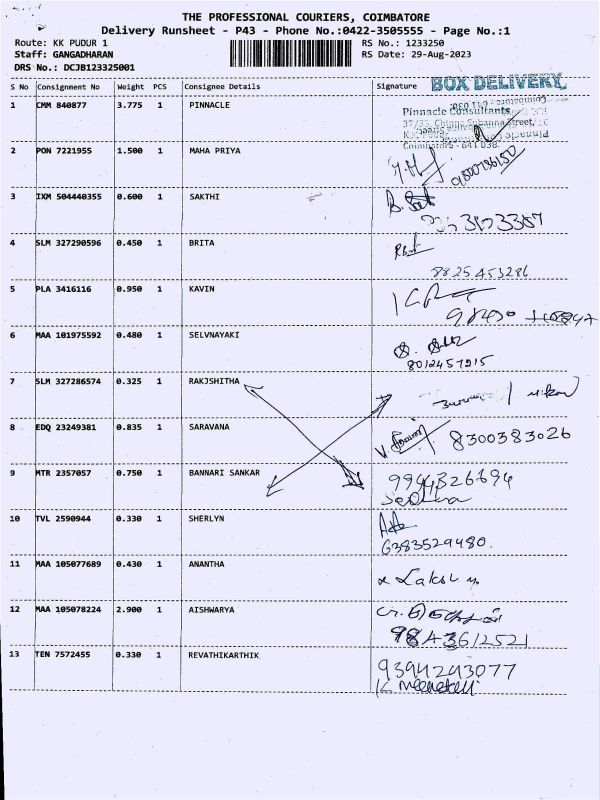 THE PROFESSIONAL COURIERS, COIMBATORE
Delivery Runsheet - P43 - Phone No.:0422-3505555 - Page No.:1
Route: KK PUDUR 1 RS No.: 1233250
Staff: GANGADHARAN RS Date: 29-Aug-2023
DRS No.: DCJB123325001
BOX DELIVERY
S No Consignment No Weight PCS Consignee Details Signature
1 CMM 840877 3.775 1 PINNACLE
Pinnacle Consultants
Street,
641 038.
2 PON 7221955 1.500 1 MAHA PRIYA
3 IXM 504440355 0.600 1 SAKTHI
4 SLM 327290596 0.450 1 BRITA
8825453286
5 PLA 3416116 0.950 1 KAVIN
6 MAA 101975592 0.480 1 SELVNAYAKI
8012457915
7 SLM 327286574 0.325 1 RAKJSHITHA
8 EDQ 23249381 0.835 1 SARAVANA 8300383026
9 MTR 2357057 0.750 1 BANNARI SANKAR
9944326694
10 TVL 2590944 0.330 1 SHERLYN
6383529480.
11 MAA 105077689 0.430 1 ANANTHA
12 MAA 105078224 2.900 1 AISHWARYA
9843612521
13 TEN 7572455 0.330 1 REVATHIKARTHIK
9394243077